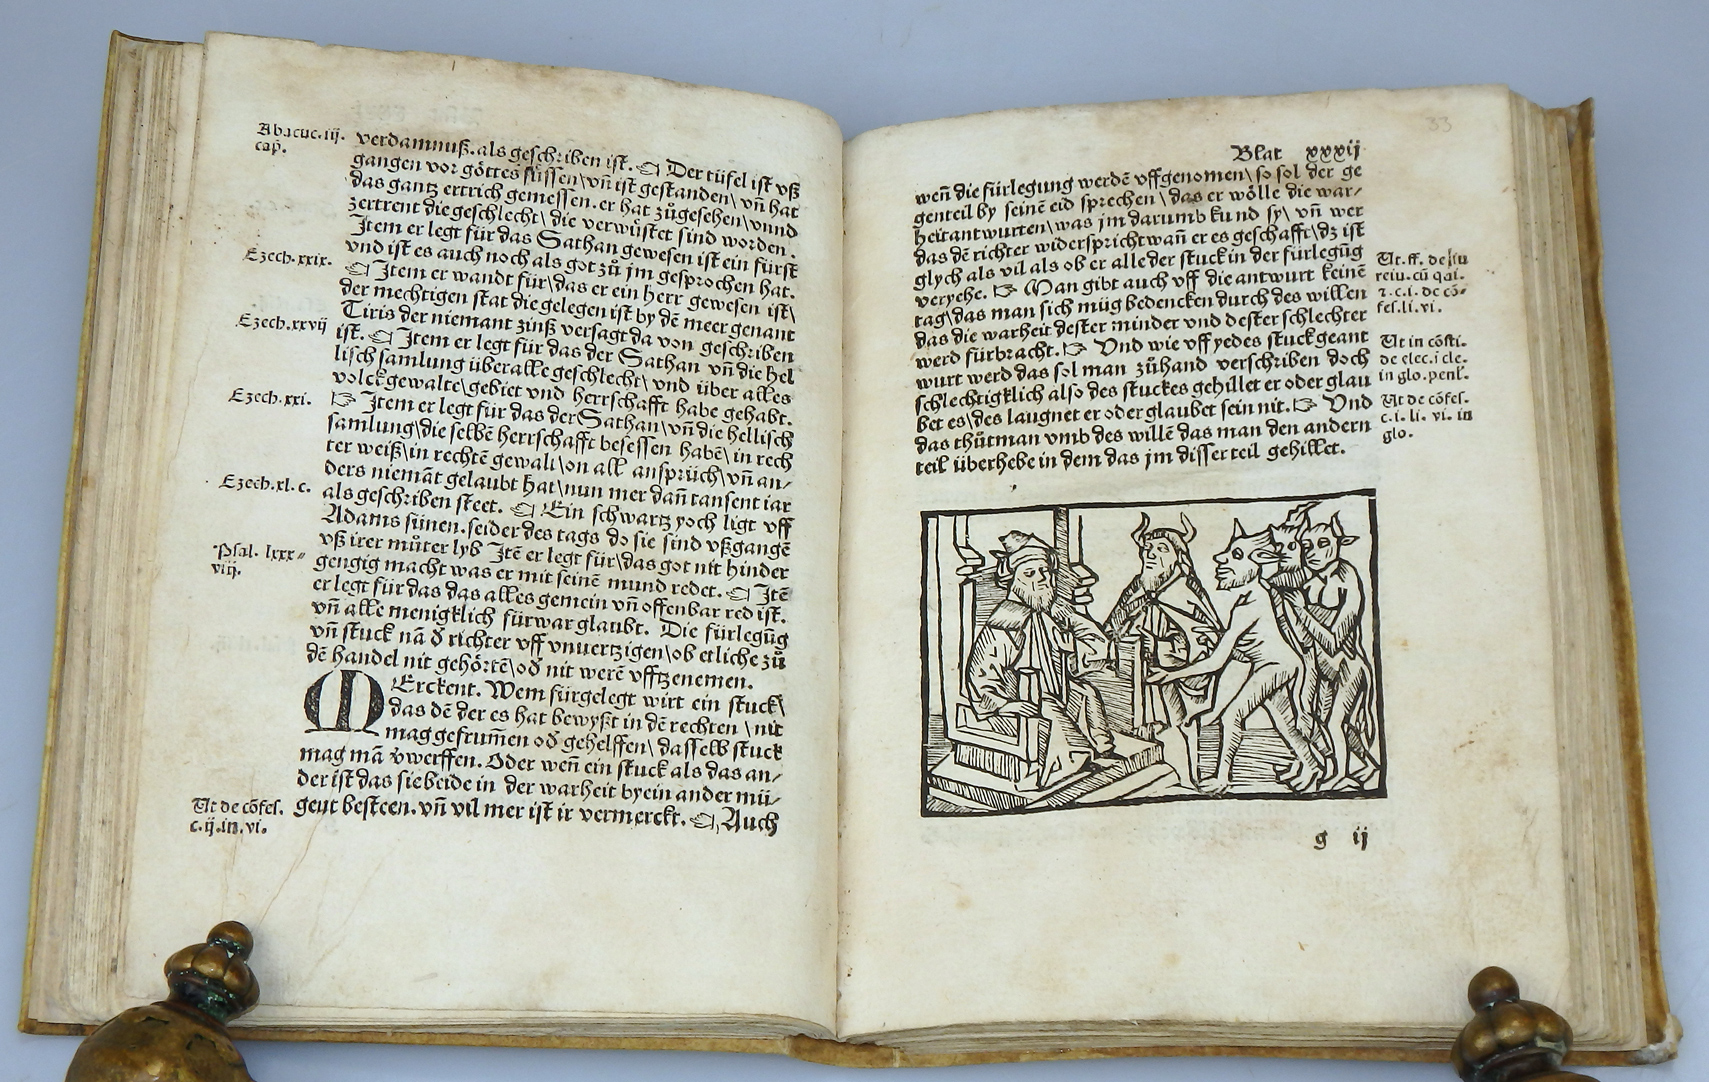 Abacuc.iij.
cap.
verdamnuß. als geschriben ist. ☜ Der tüfel ist vß
gangen vor göttes füssen\ vn̄ ist gestanden\ vn̄ hat
das gantz ertrich gemessen. er hat zůgesehen\ vnnd
zertrent die geschlecht\ die verwüstet sind worden.
Item er legt für das Sathan gewesen ist ein fürst
vnd ist es auch noch als got zů jm gesprochen hat.
Ezech.xxix.
☜ Item er wandt für\ das er ein herr gewesen ist\
der mechtigen stat die gelegen ist by dē meer genant
Tiris der niemant zinß versagt da von geschriben
Ezech.xxvij
ist. ☜ Item er legt für das der Sathan vn̄ die hel
lisch samlung über alle geschlecht\ vnd über alles
volck gewalte\ gebiet vnd herrschafft habe gehabt.
Ezech.xxi.
☞ Item er legt für das der Sathan\ vn̄ die hellisch
samlung\ die selbē herrschafft besessen habē\ in rech
ter weiß\ in rechtē gewalt\ on all ansprüch\ vn̄ an⸗
ders niemāt gelaubt hat\ nun mer dan̄ tausent iar
Ezech.xl.c.
als geschriben steet. ☜ Ein schwartz yoch ligt vff
Adams sünen. seider des tags do sie sind vßgangē
vß irer můter lyb Itē er legt für\ das got nit hinder
Psal. lxxx⸗
viij.
gengig macht was er mit seinē mund redet. ☜ Itē
er legt für das das alles gemein vn̄ offenbar red ist.
vn̄ alle menigklich fürwar glaubt. Die fürlegūg
vn̄ stuck nā d̄ richter vff vnuertzigen\ ob etliche zů
dē handel nit gehörtē\ od̄ nit werē vfftzenemen.
MErckent. Wem fürgelegt wirt ein stuck\
das dē der es hat bewyßt in dē rechten\ nit
mag gefrum̄en od̄ gehelffen\ dasselb stuck
mag mā v̄werffen. Oder wen̄ ein stuck als das an⸗
der ist das sie beide in der warheit by ein ander mü⸗
Ut de cōfes.
c.ij.in.vi.
gent besteen. vn̄ vil mer ist ir vermerckt. ☜ Auch
33
Blat xxxij
wen̄ die fürlegung werdē vffgenomen\ so sol der ge
genteil by seinē eid sprechen\ das er wölle die war⸗
heit antwurten\ was jm darumb kund sy\ vn̄ wer
das dē richter widerspricht wan̄ er es geschafft\ dz ist
glych als vil als ob er alle der stuck in der fürlegūg
veryehe. ☞ Man gibt auch vff die antwurt keinē
tag\ das man sich müg bedencken durch des willen
das die warheit dester minder vnd dester schlechter
werd fürbracht. ☞ Vnd wie vff yedes stuck geant
wurt werd das sol man zůhand verschriben doch
schlechtigklich also des stuckes gehillet er oder glau
bet es\ des laugnet er oder glaubet sein nit. ☞ Vnd
das thůt man vmb des willē das man den andern
teil überhebe in dem das jm disser teil gehillet.
Ut. ff. de iu
reiu. cū qui.
⁊.c.i. de cō⸗
fes.li.vi.
Ut in cōsti.
de elec. i cle.
in glo. penl̄.
Ut de cōfes.
c.i. li. vi. in
glo.
g ij